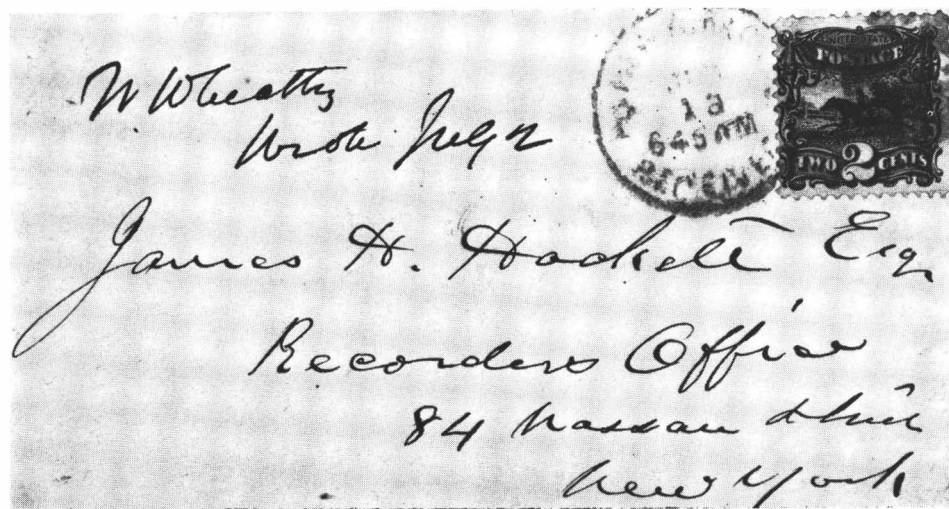 W Wheatly
Wrote July 2
13
645 PM
REC'EIVE
UNITED STATES
POSTAGE
TWO 2 CENTS
James H. Hackett Esq.
Recorders Office
84 Nassau Street
New York